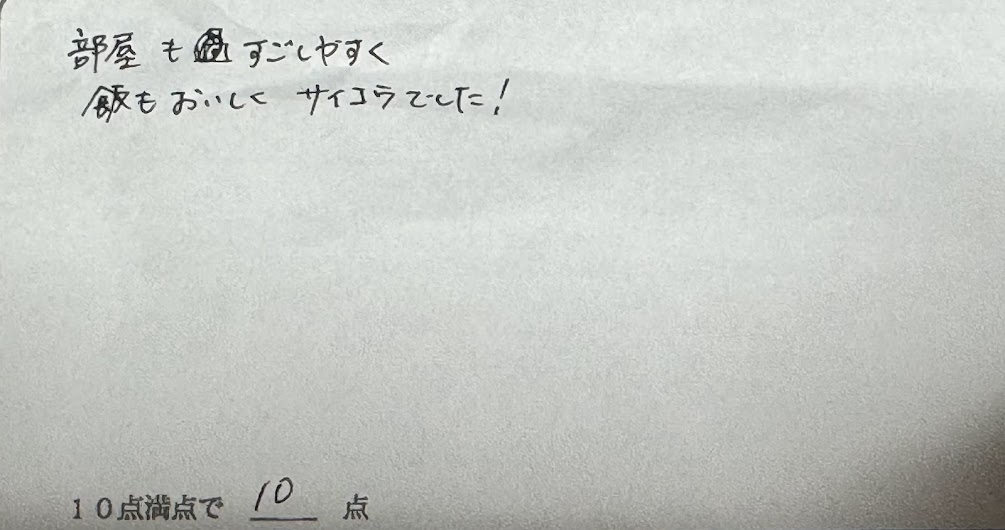 部屋も すごしやすく
飯もおいしく サイコウでした!
10点満点で 10 点